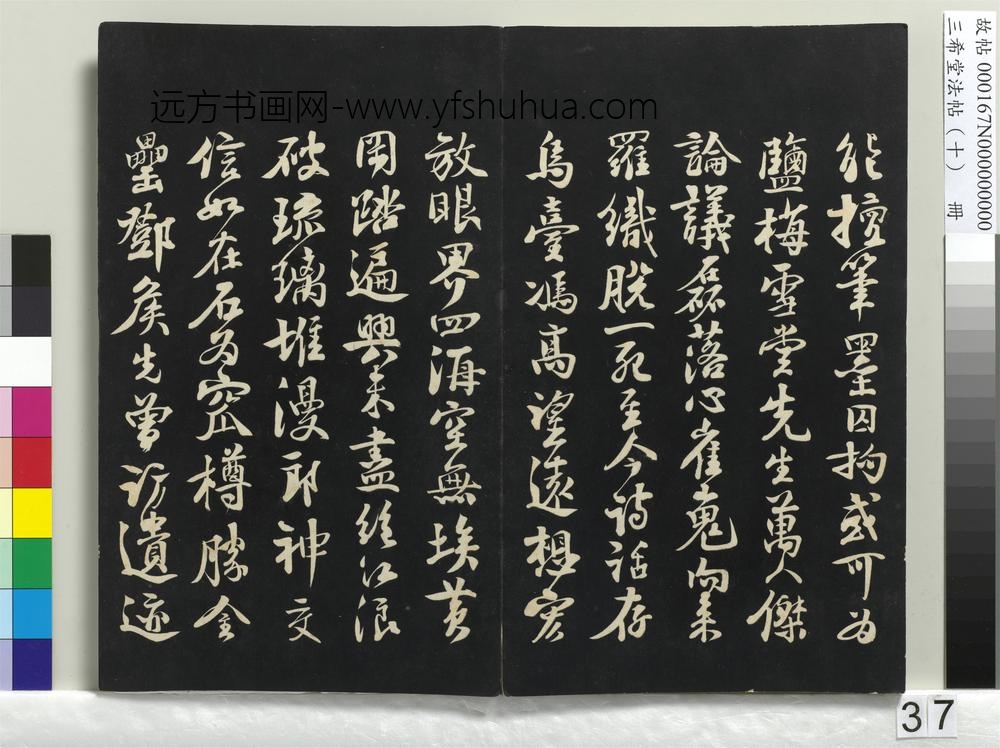 能擅筆墨囚拘或可為
鹽梅雪堂先生萬人傑
論議磊落心崔嵬向來
羅織脫一死至今詩話存
烏臺馮高望遠想宏
放眼界四海空無埃黃
岡踏遍興未盡絕江浪
破琉璃堆漫郎神交
信如在石為窊樽勝金
罍鄧侯先曾訪遺迹
远方书画网-www.yfshuhua.com
故帖 000167N000000000
三希堂法帖（十） 冊
37